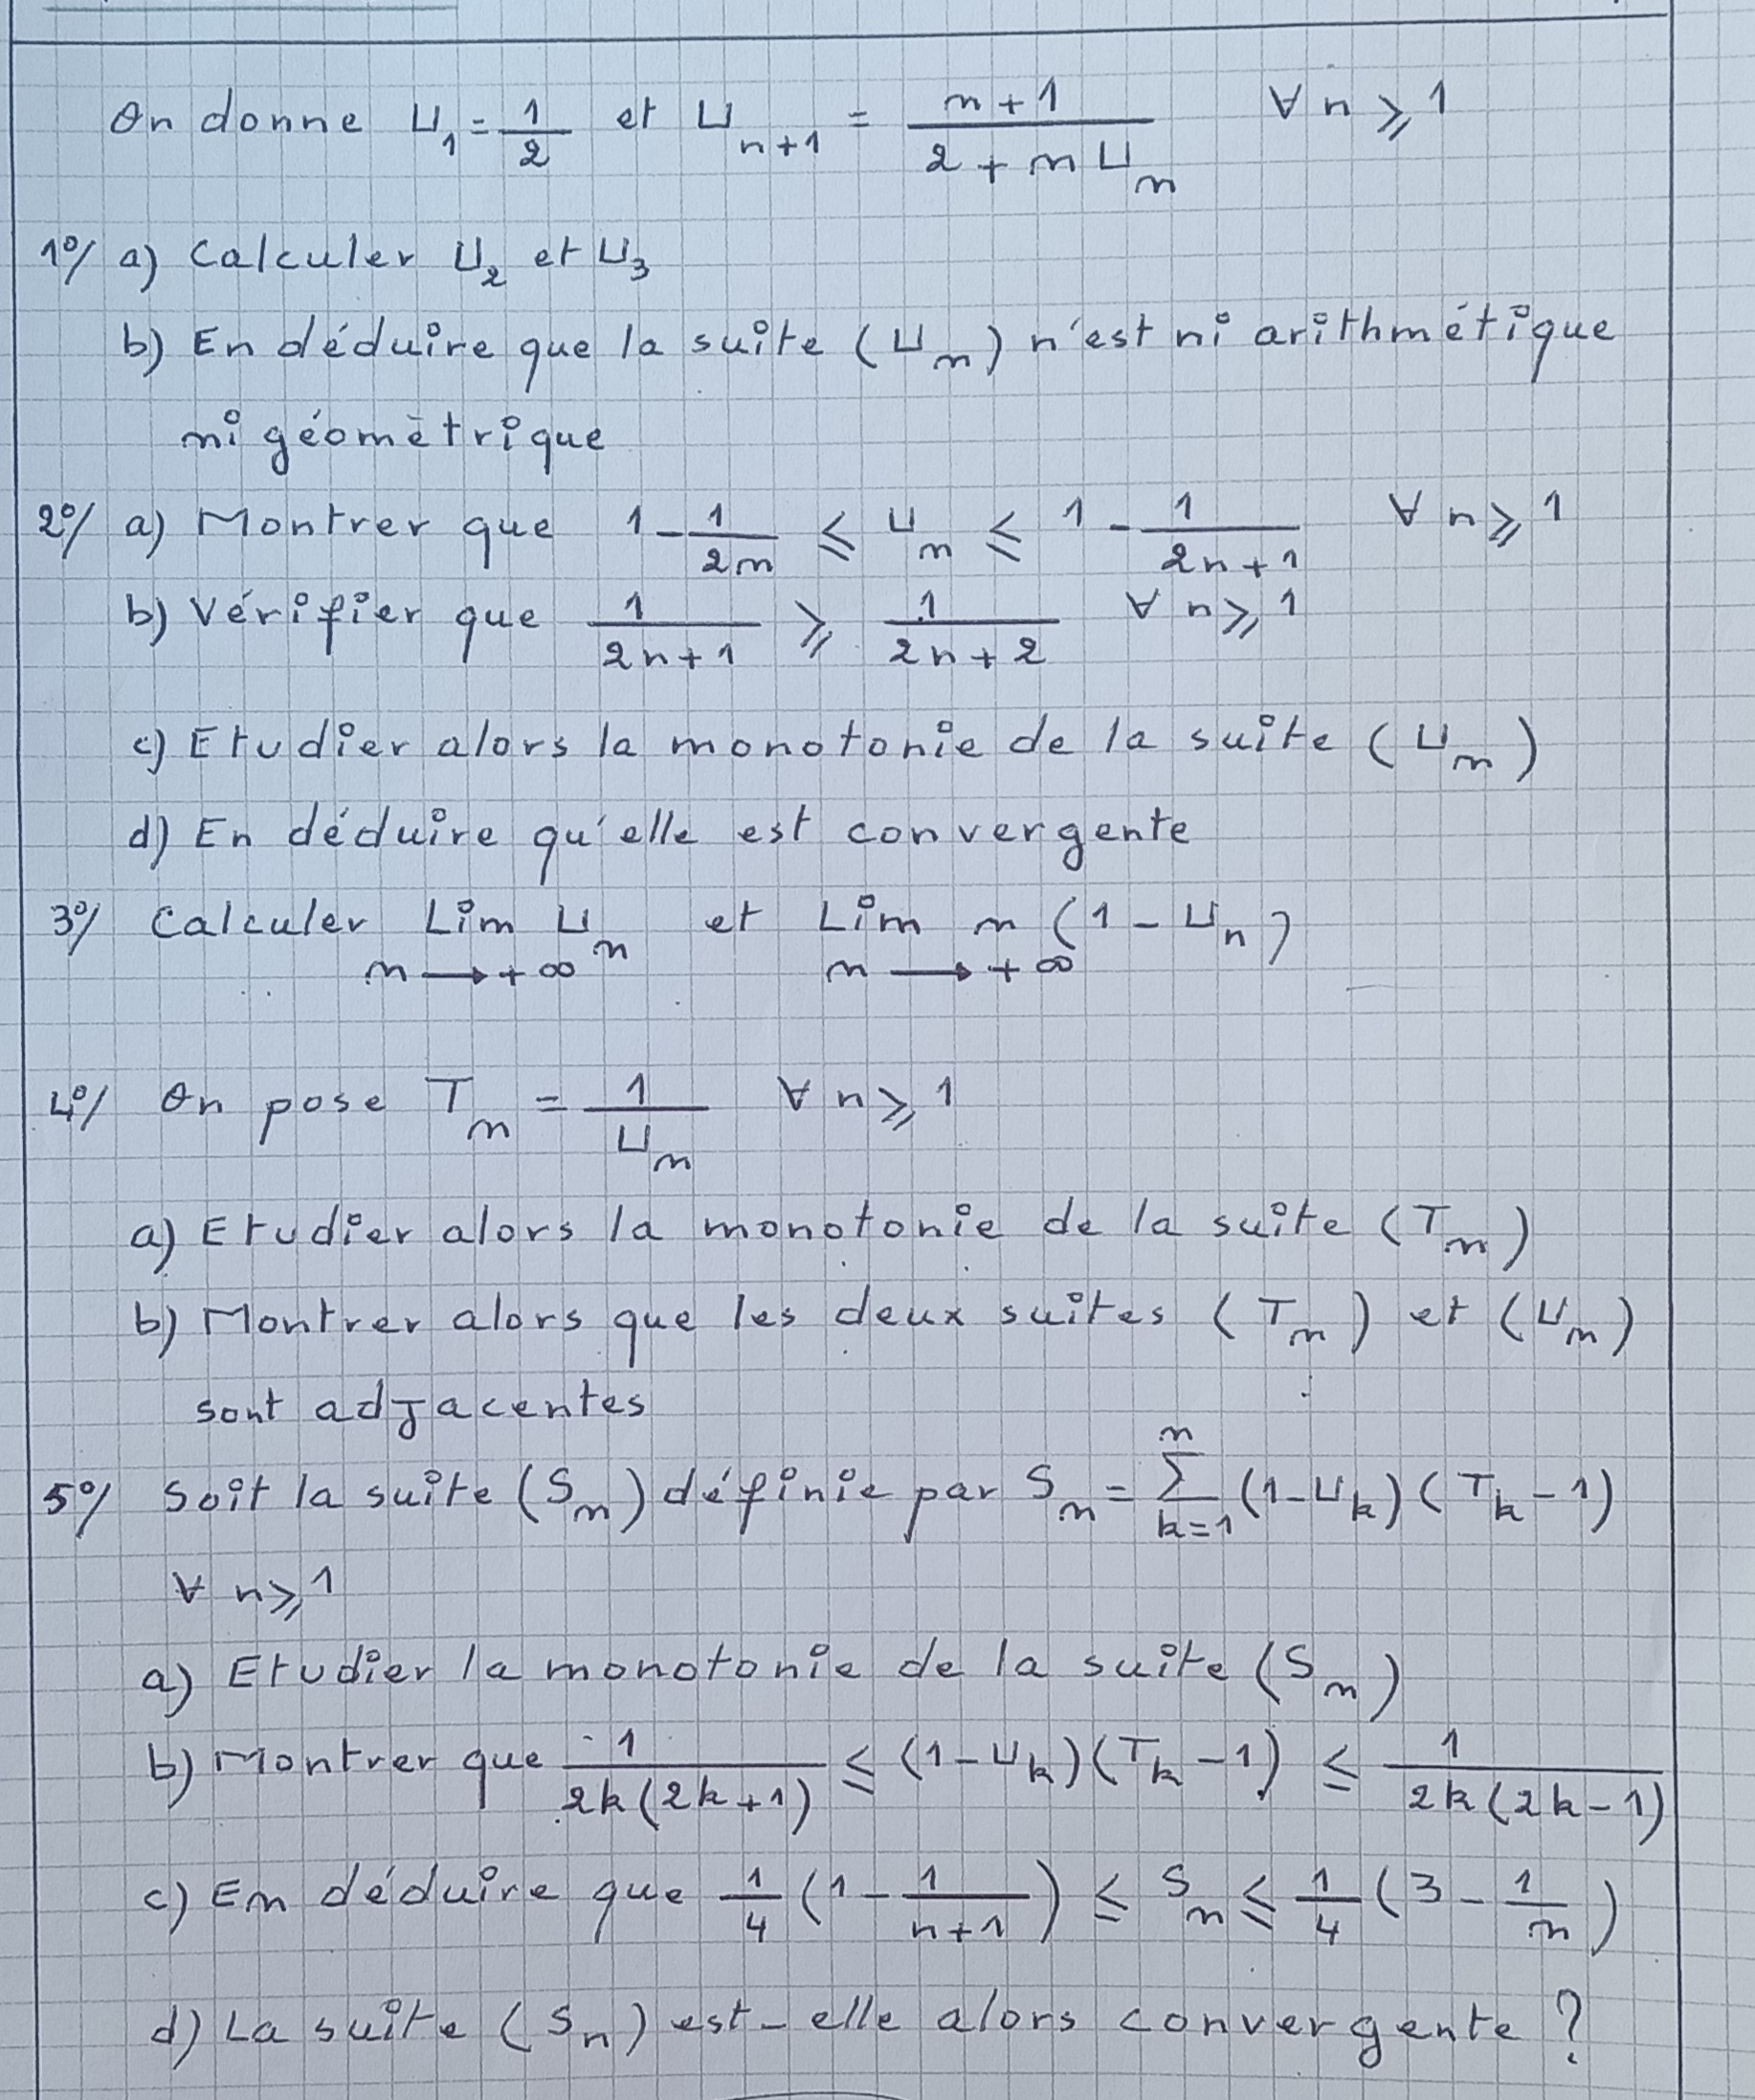 On donne U_1 = 1/2 et U_{n+1} = (n+1)/(2+nU_n) ∀ n ⩾ 1
1°/ a) Calculer U_2 et U_3
b) En déduire que la suite (U_n) n'est ni arithmétique
ni géométrique
2°/ a) Montrer que 1 - 1/(2n) ⩽ U_n ⩽ 1 - 1/(2n+1) ∀ n ⩾ 1
b) Vérifier que 1/(2n+1) ⩾ 1/(2n+2) ∀ n ⩾ 1
c) Etudier alors la monotonie de la suite (U_n)
d) En déduire qu'elle est convergente
3°/ Calculer Lim_{n→+∞} U_n et Lim_{n→+∞} n(1-U_n)
4°/ On pose T_n = 1/U_n ∀ n ⩾ 1
a) Etudier alors la monotonie de la suite (T_n)
b) Montrer alors que les deux suites (T_n) et (U_n)
sont adjacentes
5°/ Soit la suite (S_n) définie par S_n = Σ_{k=1}^{n} (1-U_k)(T_k-1)
∀ n ⩾ 1
a) Etudier la monotonie de la suite (S_n)
b) Montrer que 1/(2k(2k+1)) ⩽ (1-U_k)(T_k-1) ⩽ 1/(2k(2k-1))
c) En déduire que 1/4 (1 - 1/(n+1)) ⩽ S_n ⩽ 1/4 (3 - 1/n)
d) La suite (S_n) est-elle alors convergente ?